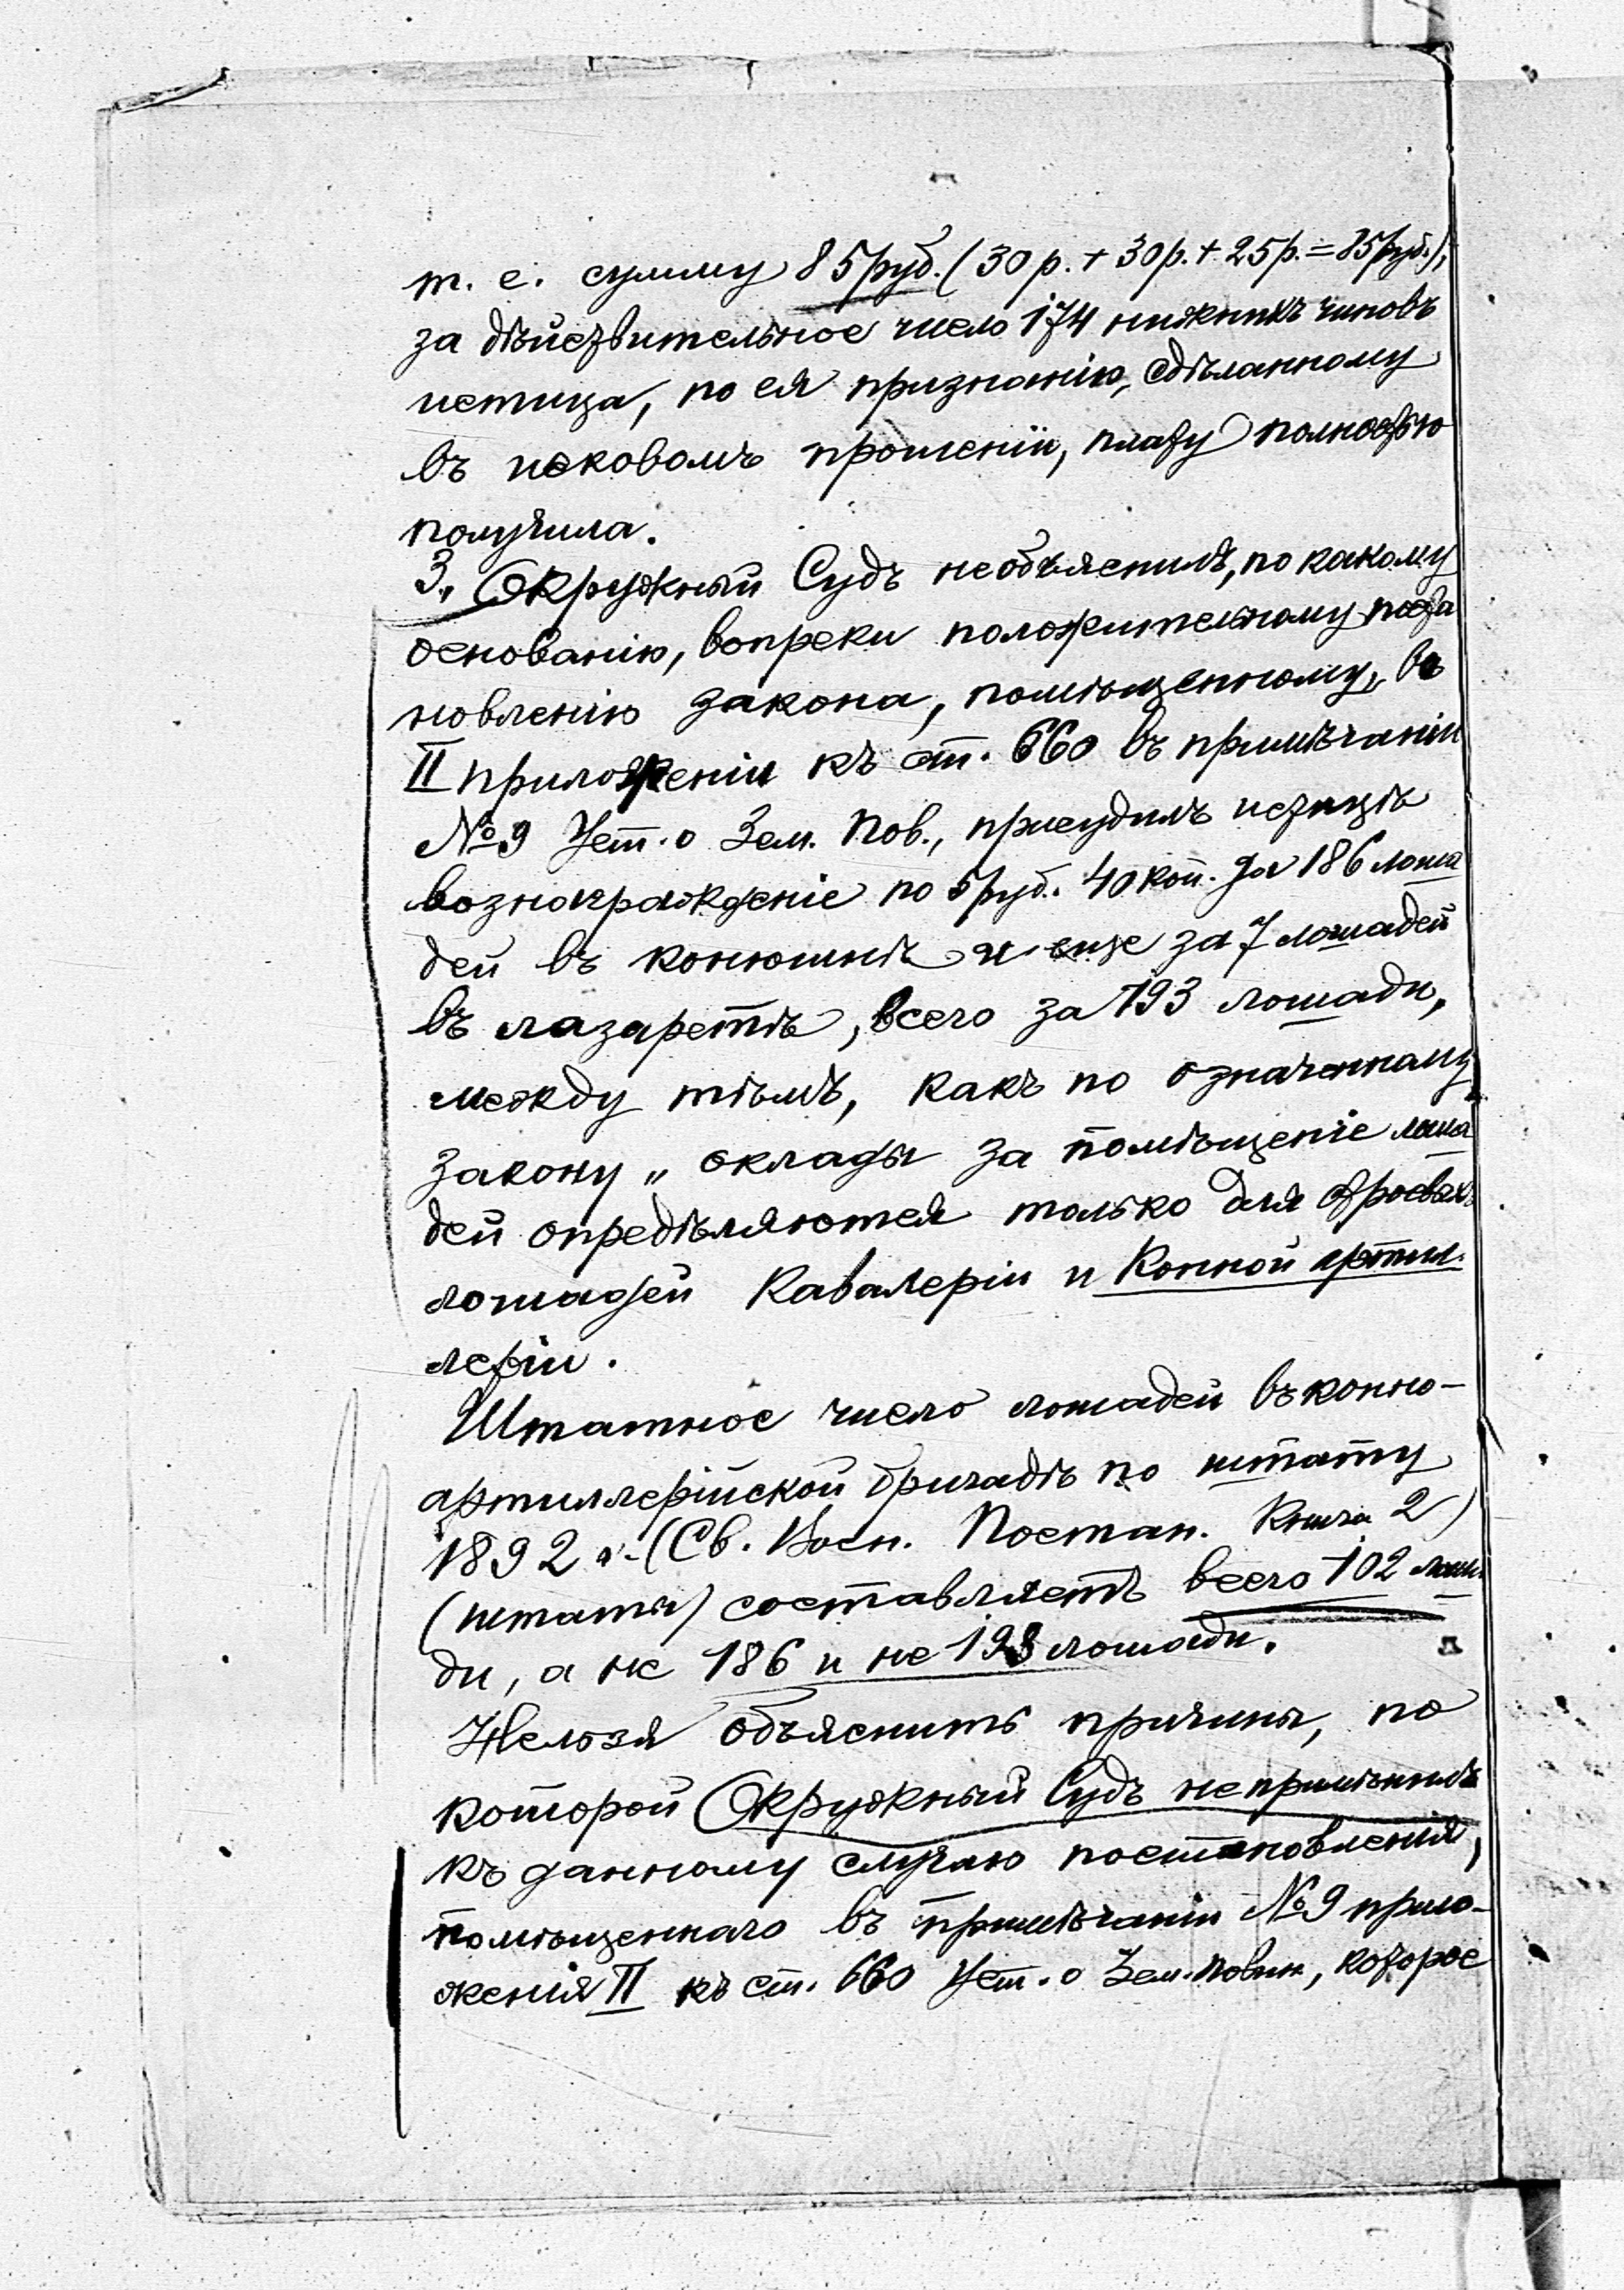 т. е. сумму 85 руб. (30 р. + 30 р. + 25 р. = 85 руб.),
за дѣйствительное число 174 нижнихъ чиновъ
истица, по ея признанію, сдѣланному
въ исковомъ прошеніи, плату полностью
получила.
3., Окружный Судъ необъяснилъ, по какому
основанію, вопреки положительному поста
новленію закона, помѣщенному, въ
II приложеніи къ ст. 660 въ примѣчаніи
№ 9 Уст. о Зем. Пов., присудилъ истицѣ
вознагражденіе по 5 руб. 40 коп. за 186 лоша
дей въ конюшнѣ и еще за 7 лошадей
въ лазаретѣ, всего за 193 лошади,
между тѣмъ, какъ по означенному
закону „ оклады за помѣщеніе лоша
дей опредѣляются только для строевыхъ
лошадей Кавалеріи и Конной артил-
леріи.
Штатное число лошадей въ конно-
артиллерійской бригадѣ по штату
1892 г. (Св. Воен. Постан. Книга 2)
(штаты) составляетъ всего 102 лоша
ди, а не 186 и не 193 лошади.
Нельзя объяснить причины, по
которой Окружный Судъ не примѣнилъ
къ данному случаю постановленія,
помѣщеннаго въ примѣчаніи № 9 прило-
женія II къ ст. 660 Уст. о Зем. Повин, которое